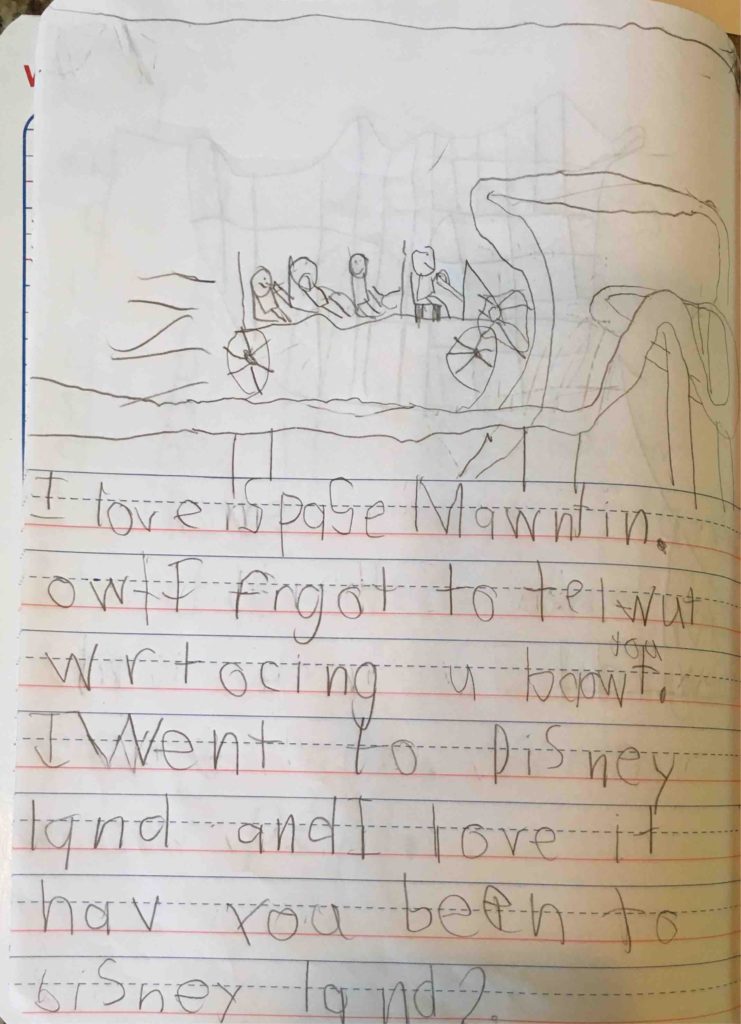 I love spase Mawntin.
owt I frgot to tel you wut
wr tocing u boowt.
I Went to Disney
land and I love it
hav you been to
Disney land?